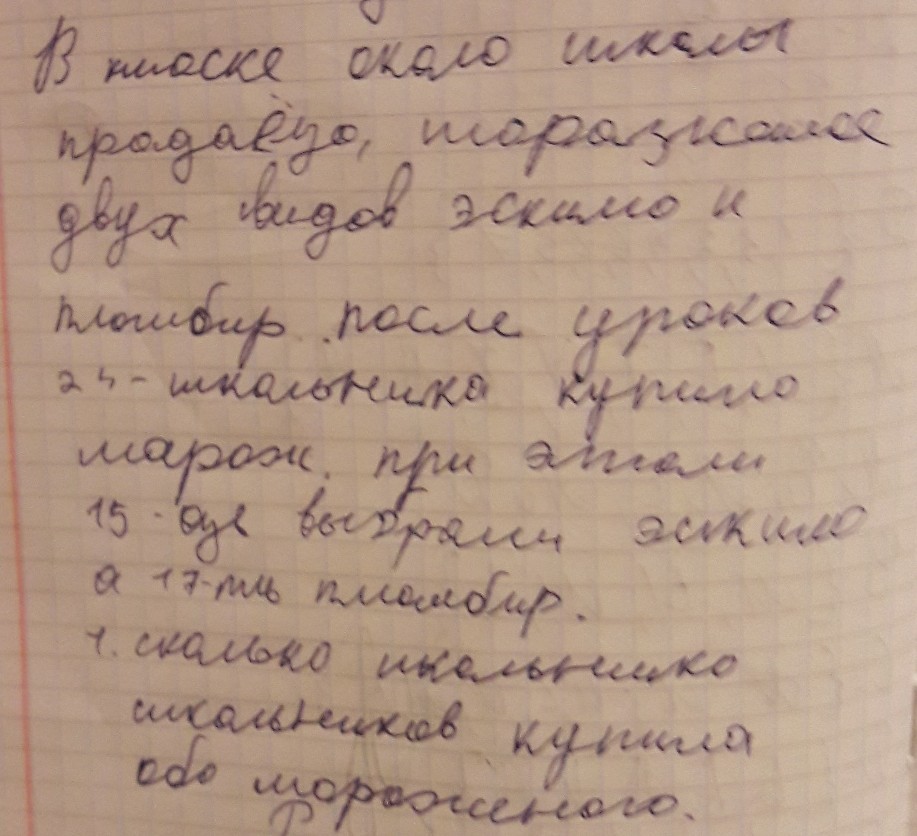 В киоске около школы
продаёца, мороженое
двух видов эскимо и
пломбир. после уроков
24-школьника купило
марож. при этом
15-оуе выбрали эскимо
а 17-ть пломбир.
1. сколько школьнико
школьников купила
обо мороженого.